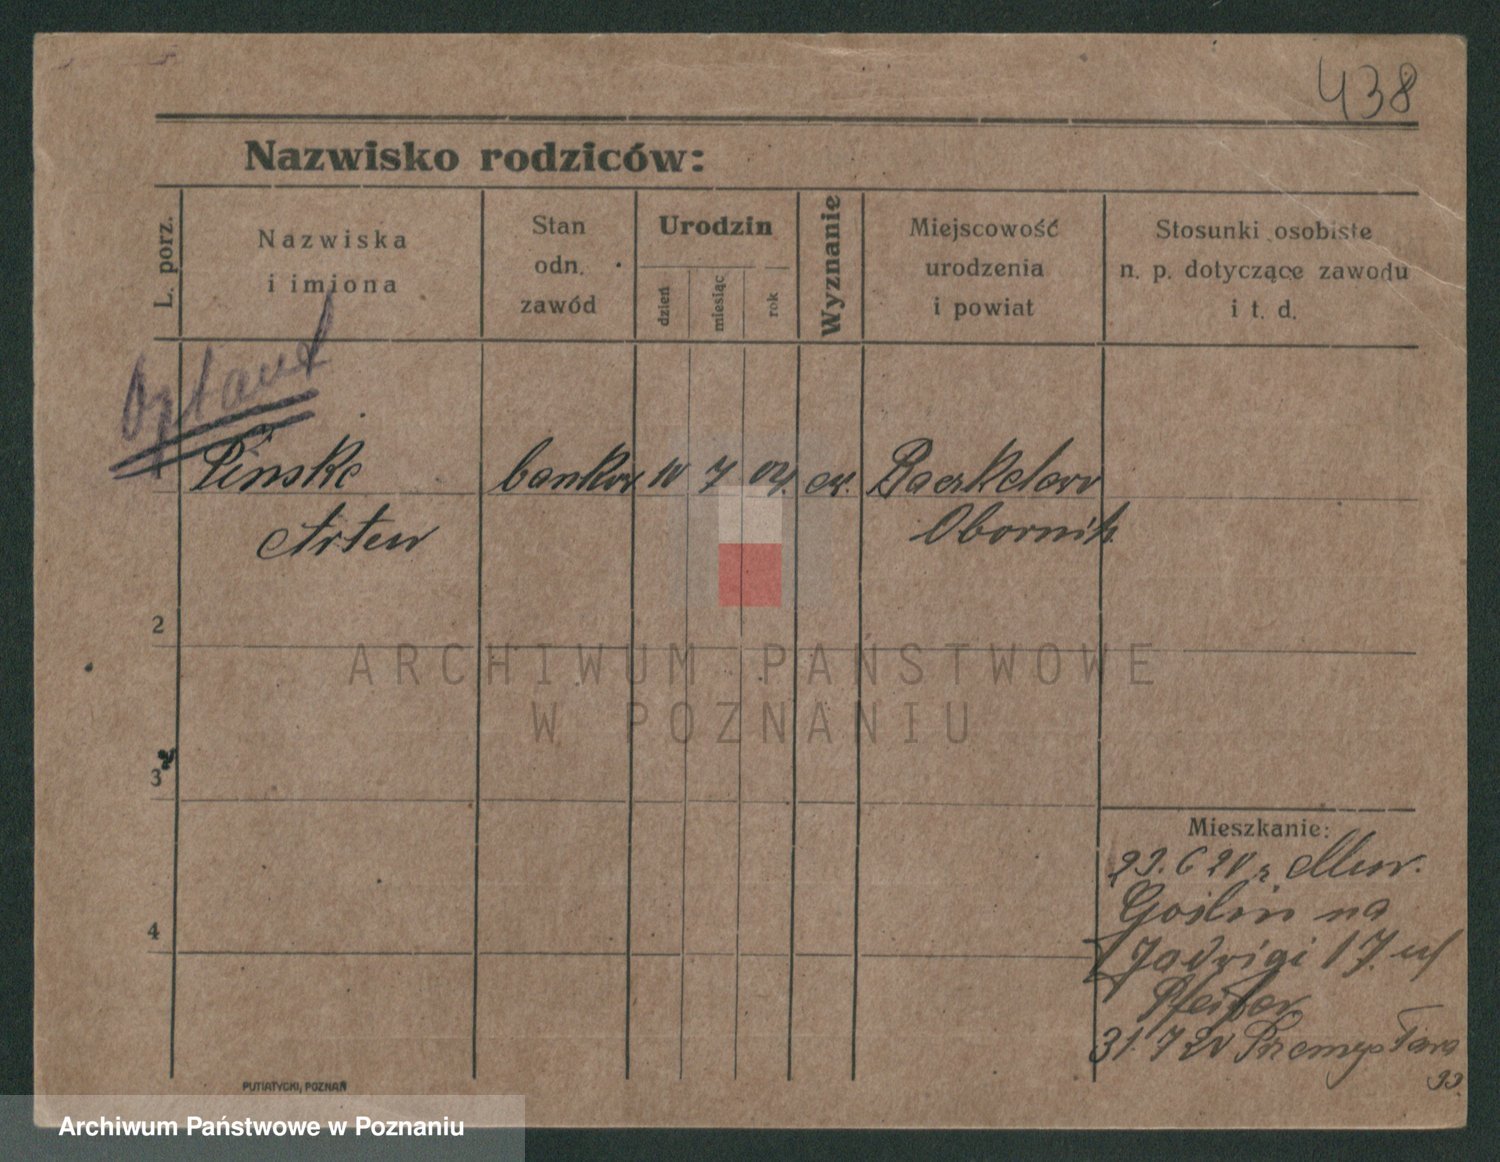 438
Nazwisko rodziców:
L. porz.
Nazwiska
i imiona
Stan
odn.
zawód
Urodzin
dzień
miesiąc
rok
Wyznanie
Miejscowość
urodzenia
i powiat
Stosunki osobiste
n. p. dotyczące zawodu
i t. d.
Optant
Pinske bankow 10 7 04. ew.
Obornik
2
3
4
Mieszkanie:
23. 6 20 z Mur.
Goślin na
Jadwigi 17. u
Pfeifer
31. 7 20 Przemysława
93
PUTIATYCKI, POZNAŃ
ARCHIWUM PAŃSTWOWE
W POZNANIU
Archiwum Państwowe w Poznaniu